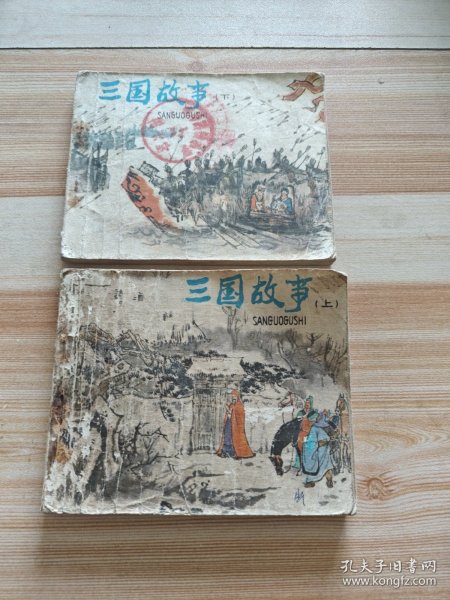 三国故事（下）
SANGUOGUSHI
三国故事（上）
SANGUOGUSHI
孔夫子旧书网
www.kongfz.com